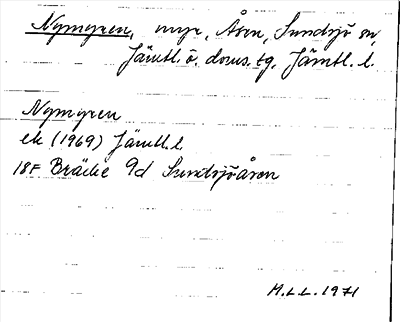 Nymyren, myr, Åsen, Sundsjö sn,
Jämtl. ö. doms. tg. Jämtl. l.
Nymyren
ek (1969) Jämtl. l
18F Bräcke 9d Sundsjöåsen
M.L.L. 1971